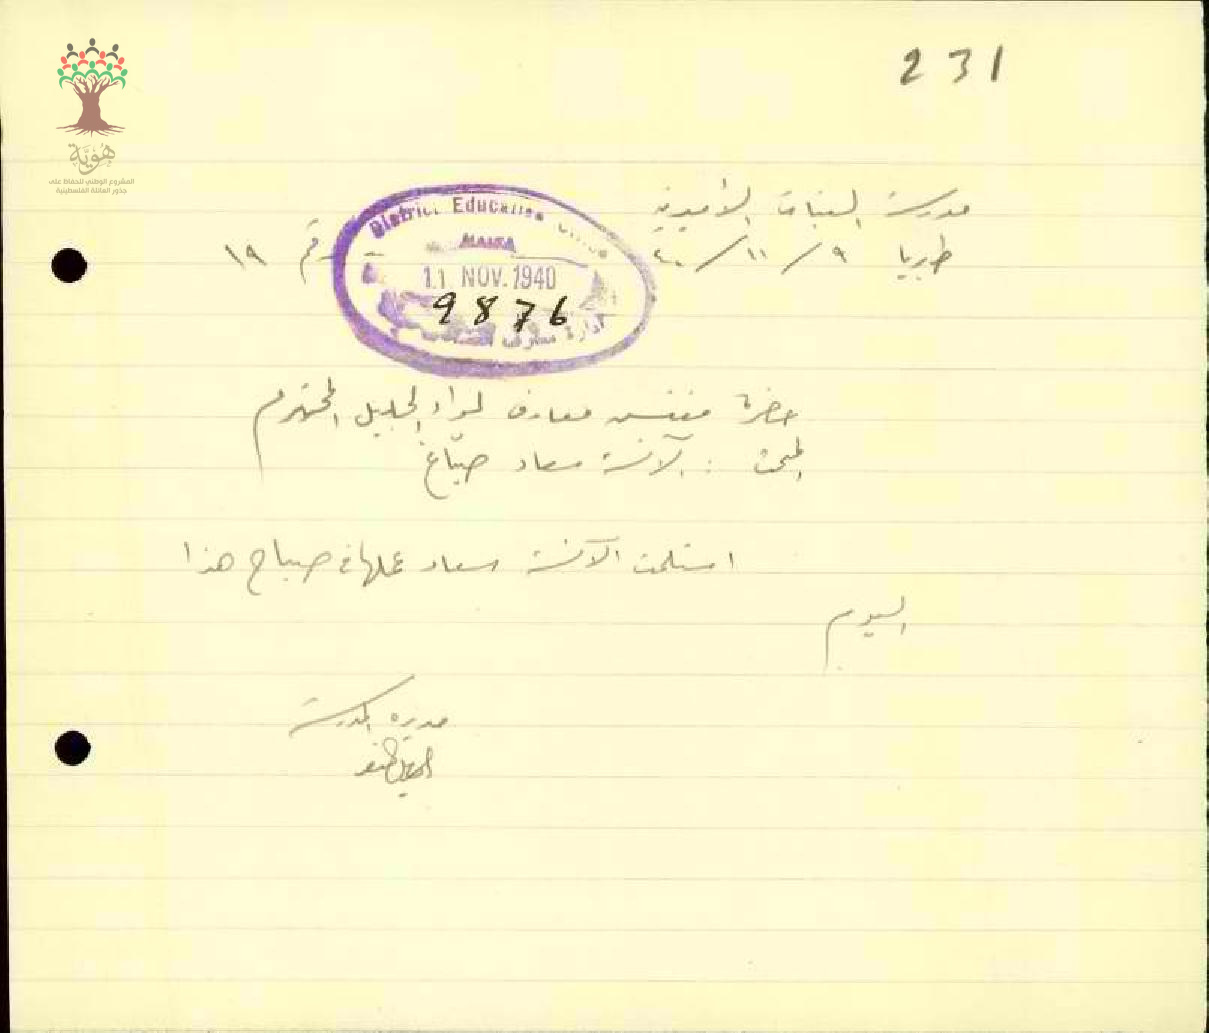 231
هُوِيَّة
المشروع الوطني للحفاظ على
جذور العائلة الفلسطينية
مدرسة البنات الأميرية
طبريا ٩/١١/٤٠ رقم ١٩
District Education Office
HAIFA
11 NOV. 1940
9876
ادارة معارف
حضرة مفتش معارف لواء الجليل المحترم
المبحث : الآنسة سعاد صبّاغ
استلمت الآنسة سعاد عملها في صباح هذا
اليوم
مديرة المدرسة